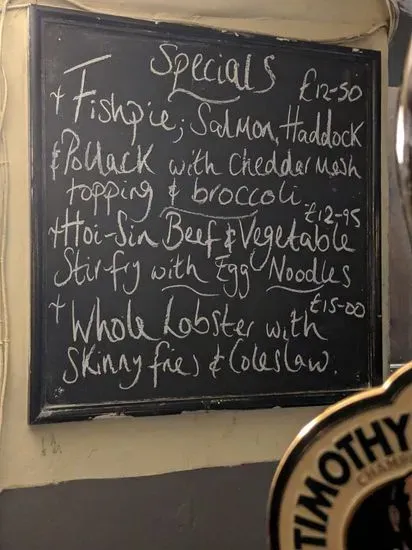 Specials
£12-50
+ Fishpie; Salmon, Haddock
& Pollack with Cheddar Mash
topping & broccoli
£12-95
+ Hoi-Sin Beef & Vegetable
Stir-fry with Egg Noodles
£15-00
+ Whole Lobster with
Skinny fries & Coleslaw.
TIMOTHY
CHAM